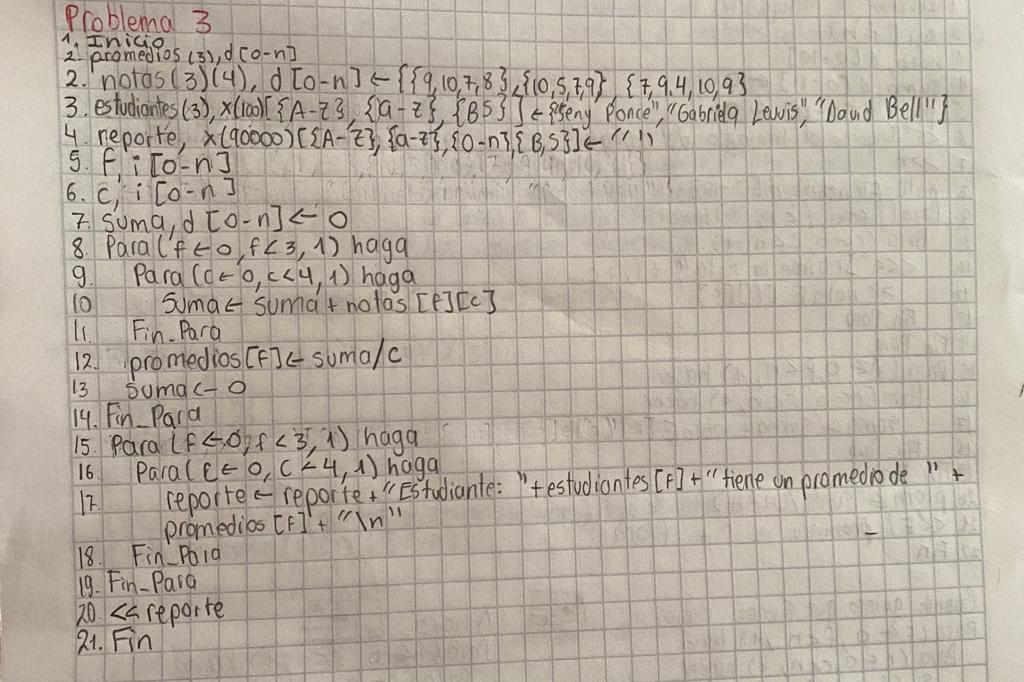 Problema 3
1. Inicio
2. promedios(3), d[0-n]
2. notas(3)(4), d[0-n] ← {{9,10,7,8},{10,5,7,9}, {7,9.4,10,9}
3. estudiantes(3), x(100)[{A-Z}, {a-z}, {BS}] ← {"Jeny Ponce", "Gabriela Lewis", "David Bell"}
4. reporte, x(90000)[{A-Z},{a-z},{0-n},{B,S}] ← " "
5. f, i[0-n]
6. c, i[0-n]
7. Suma, d[0-n] ← 0
8. Para(f ← 0, f<3, 1) haga
9. Para(c ← 0, c<4, 1) haga
10 Suma ← suma + notas [f][c]
11. Fin_Para
12. promedios[f] ← suma/c
13 suma ← 0
14. Fin_Para
15. Para(f ← 0, f<3, 1) haga
16. Para(c ← 0, c<4, 1) haga
17. reporte ← reporte + "Estudiante: "+estudiantes[f]+"tiene un promedio de " +
promedios[f] + "\n"
18. Fin_Para
19. Fin_Para
20. << reporte
21. Fin